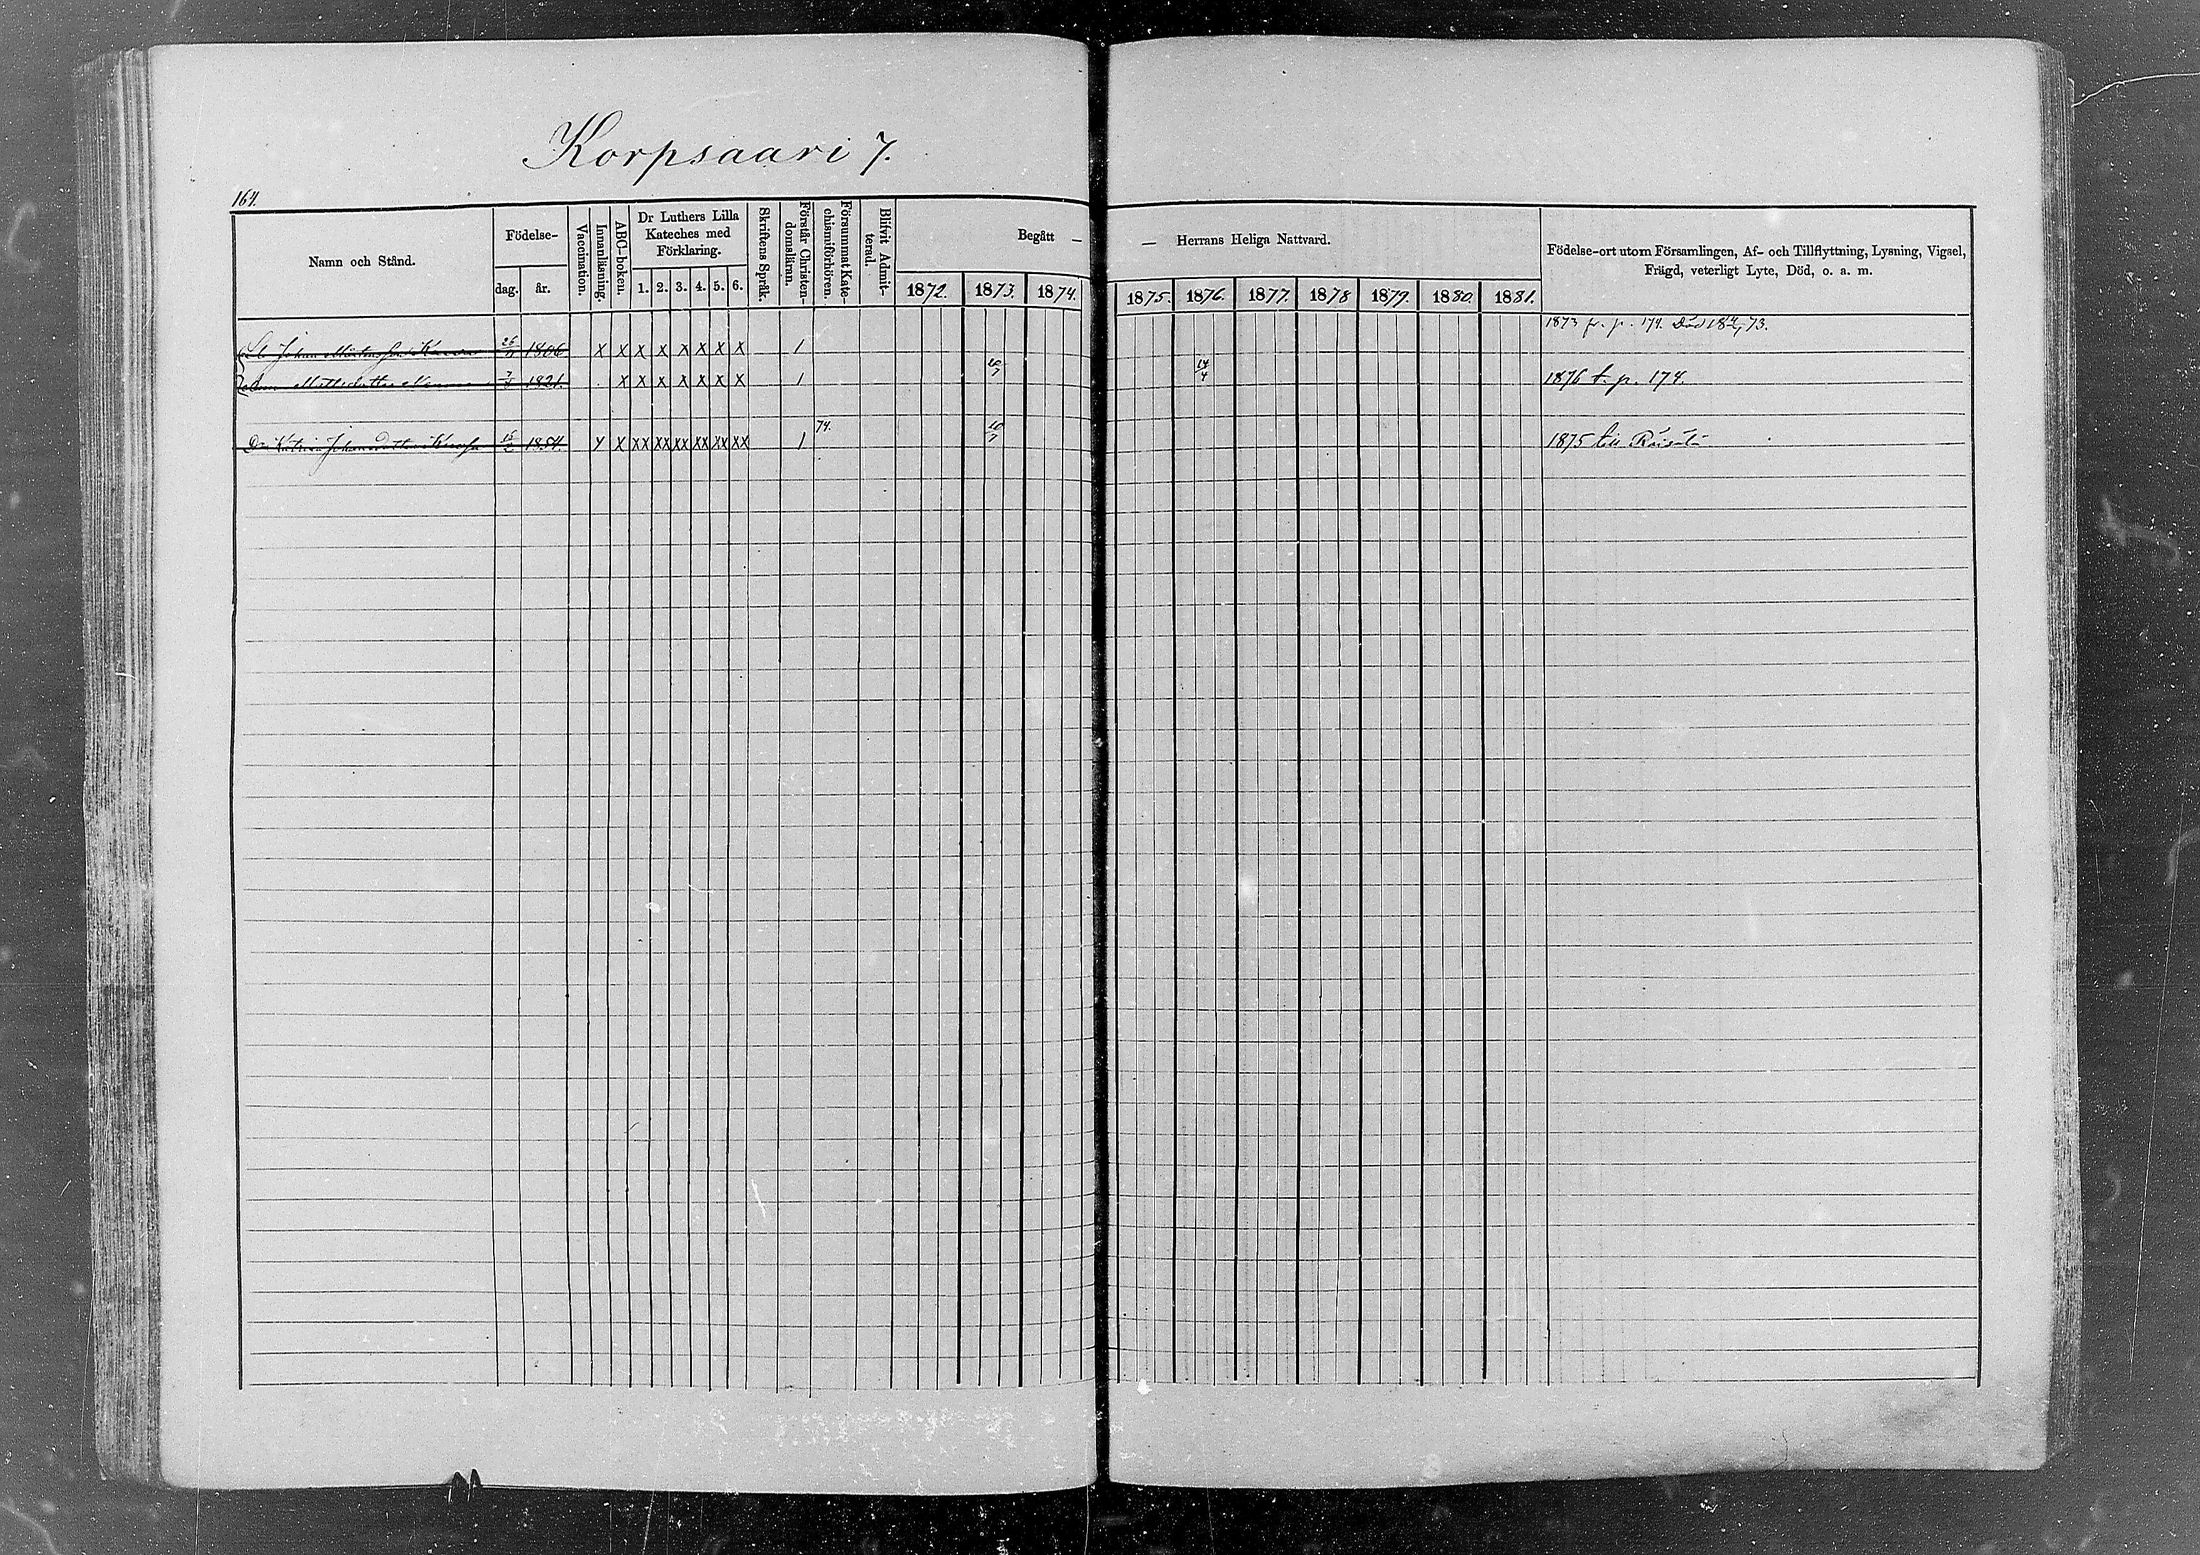 Korpsaari 7.
164.
Namn och Stånd.
Födelse-
dag.
år.
Vaccination.
Innanläsning.
ABC-boken.
Dr Luthers Lilla
Kateches med
Förklaring.
1. 2. 3. 4. 5. 6.
Skriftens Språk.
Förstår Christen-
domsläran.
Försummat Kate-
chismiförhören.
Blifvit Admit-
terad.
Begått —
— Herrans Heliga Nattvard.
1872. 1873. 1874. 1875. 1876. 1877. 1878 1879. 1880. 1881.
Födelse-ort utom Församlingen, Af- och Tillflyttning, Lysning, Vigsel,
Frägd, veterligt Lyte, Död, o. a. m.
Johan 1806 x x x x x x x x 1 1873 fr. p. 174. Död
1821. x x x x x x x 1 10/7 14/4 1876 t. p. 174.
Johansdotter 1854. x x xx xx xx xx xx xx 1 74. 10/7 1875 till Räisälä